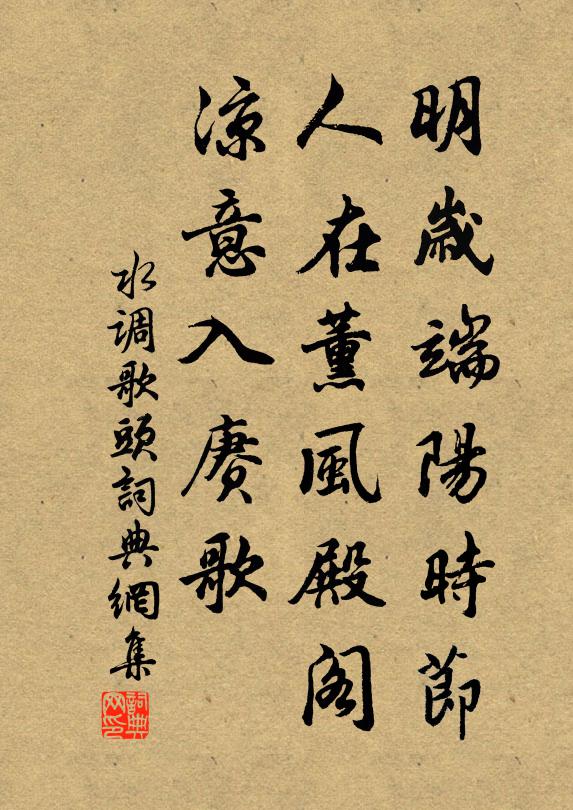 明歲端陽時節
人在薰風殿閣
涼意入賡歌
水調歌頭詞典網集
詞典
网印